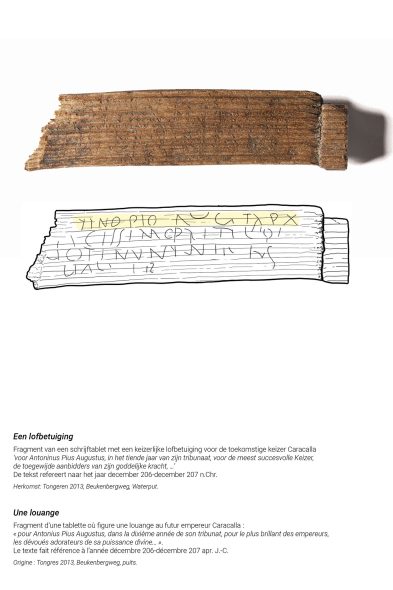 PIO AUG
Een lofbetuiging
Fragment van een schrijftablet met een keizerlijke lofbetuiging voor de toekomstige keizer Caracalla
'voor Antoninus Pius Augustus, in het tiende jaar van zijn tribunaat, voor de meest succesvolle Keizer,
de toegewijde aanbidders van zijn goddelijke kracht, ...'
De tekst refereert naar het jaar december 206-december 207 n.Chr.
Herkomst: Tongeren 2013, Beukenbergweg, Waterput.
Une louange
Fragment d'une tablette où figure une louange au futur empereur Caracalla :
« pour Antoninus Pius Augustus, dans la dixième année de son tribunat, pour le plus brillant des empereurs,
les dévoués adorateurs de sa puissance divine... ».
Le texte fait référence à l'année décembre 206-décembre 207 apr. J.-C.
Origine : Tongres 2013, Beukenbergweg, puits.